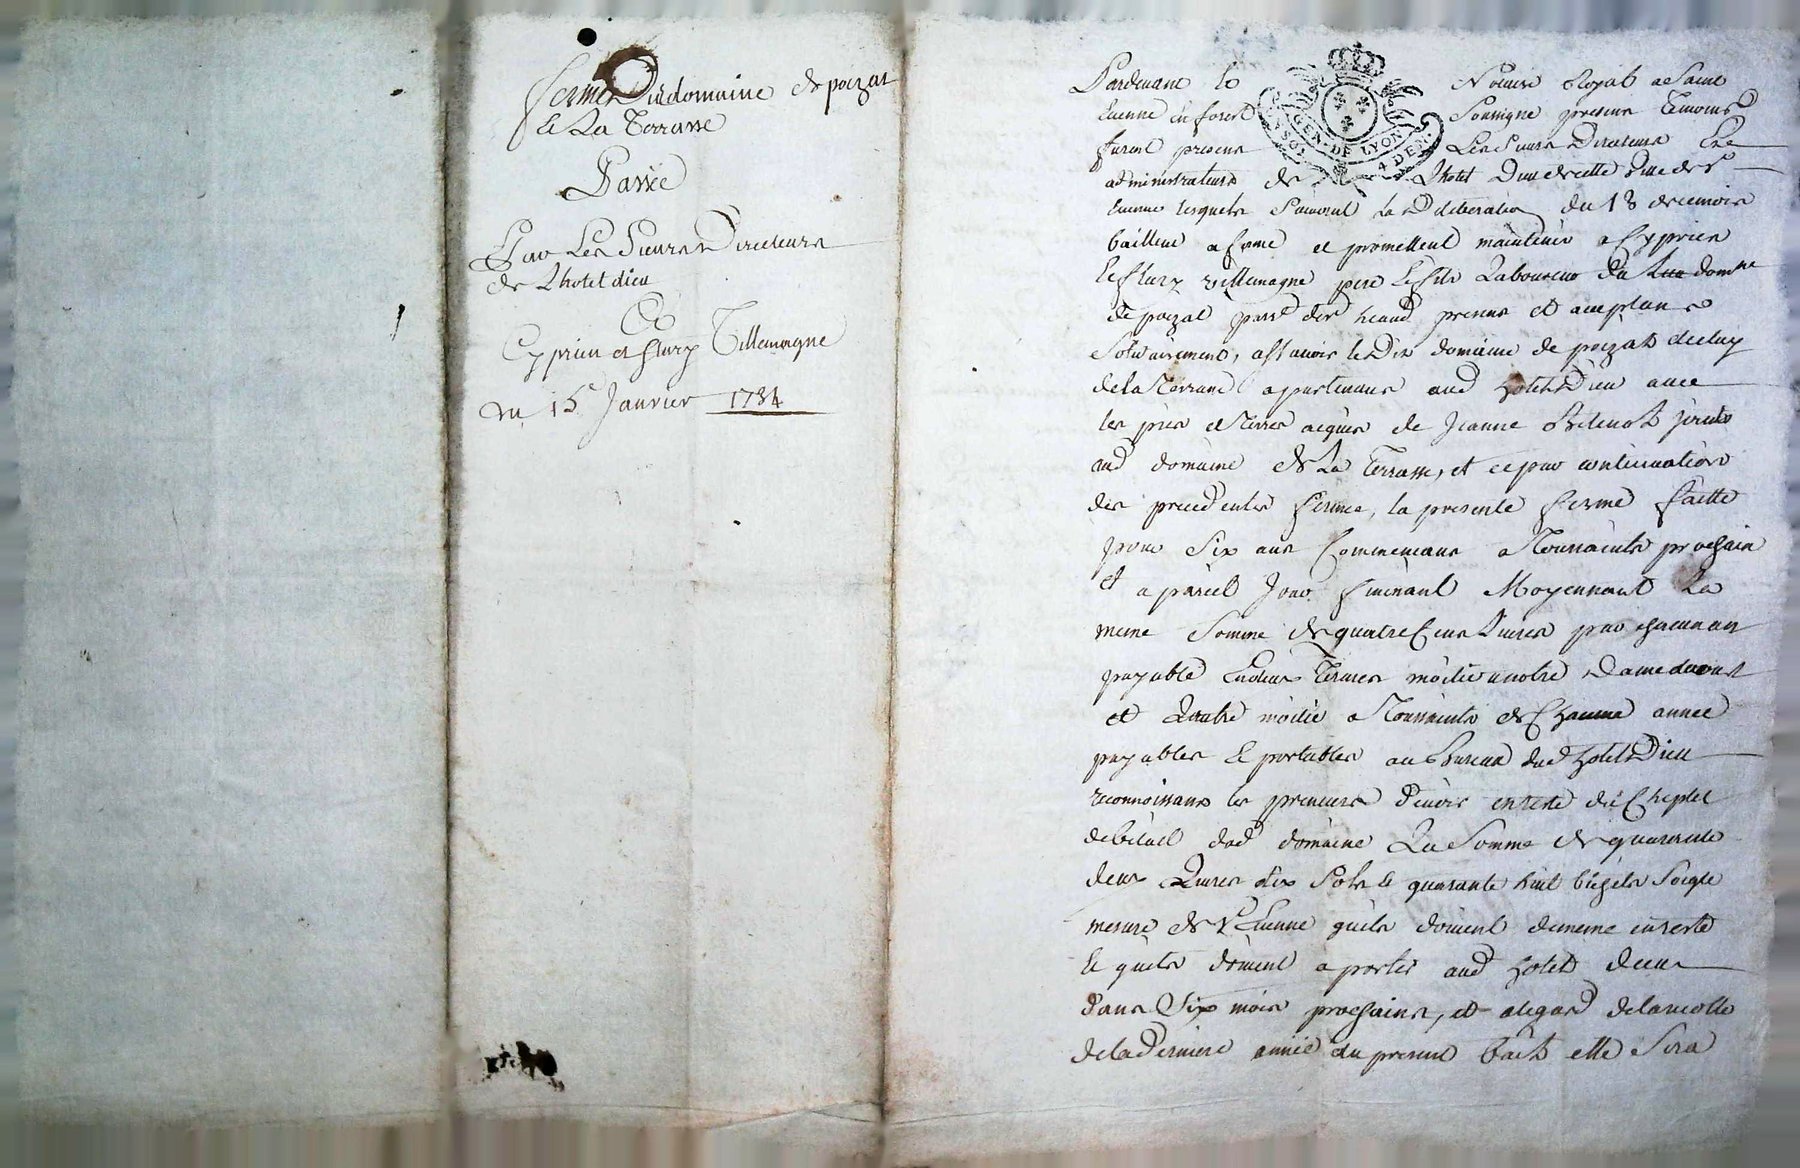 ferme Du domaine de poizat
& La Terrasse
Passée
Par Les Sieurs Directeurs
de Lhotel dieu
A
Cyprien et fleury Villemagne
du 15 Janvier 1784
GEN. DE LYON
4 DEN.
Pardevant le Notaire Royal a Saint
Etienne en forest Soussigné presents Temoins
furent presents Les Sieurs Directeurs Et
administrateurs de Lhotel Dieu de cette ville de St
Etienne lesquels Suivant La Deliberation du 18 decembre
baillent a ferme et promettent maintenir a Cyprien
& fleury villemagne pere & fils Laboureur du domne
de poizat parse de heaud presens et acceptans
Solidairement, assavoir le Dit domaine de poizat & celuy
de la Terrasse apartenans aud hotel Dieu avec
les près et Terres acquis de Jeanne joints
aud domaine de La Terrasse, et ce par continuation
des precedentes fermes, la presente ferme faitte
pour Six ans Commencans a Toussaints prochain
et a pareil Jour finissant Moyennant La
meme Somme de quatre Cens Livres par chacun an
payable En deux Termes moitié a notre Dame de
et Lautre moitié a Toussaints de Chacune année
payables & portables au Bureau dud hotel Dieu
reconnoissans les preneurs devoir en reste du Cheptel
de betail dud domaine La Somme de quarante
deux Livres dix Sols & quarante huit bichets Soigle
mesure de St Etienne quils doivent de meme en reste
& quils doivent aporter aud hotel dieu
dans Six mois prochains, et a legard de la recolte
de la Derniere année du present bail elle Sera